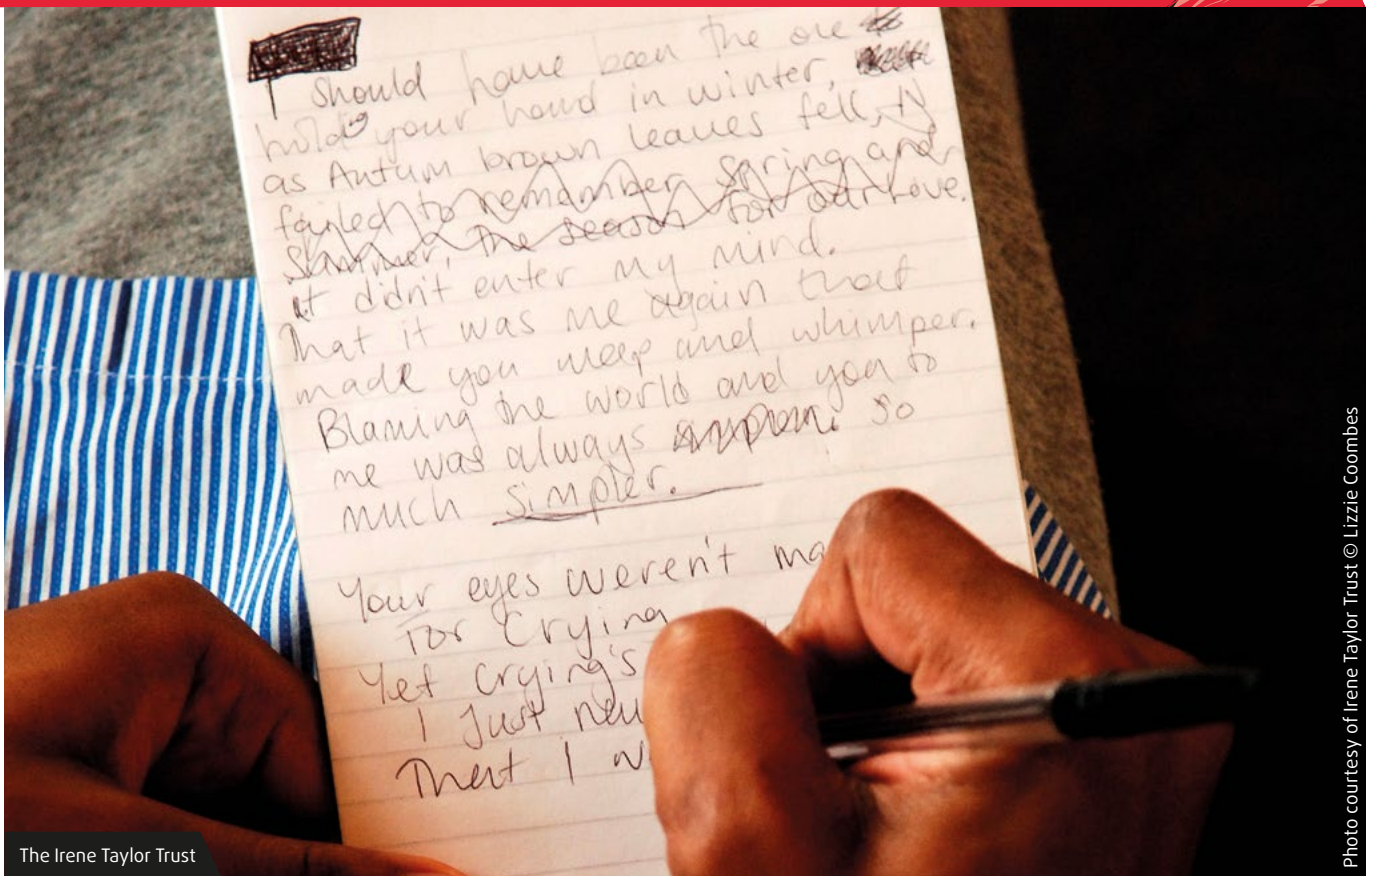 I should have been the one
hold your hand in winter,
as Autum brown leaves fell,
failed to remember spring and
Summer, the season for our Love.
it didn't enter my mind.
That it was me again that
made you weep and whimper.
Blaming the world and you to
me was always so
much simpler.
Your eyes weren't ma
For Crying
Yet Crying's
I Just neu
That I w
The Irene Taylor Trust
Photo courtesy of Irene Taylor Trust © Lizzie Coombes